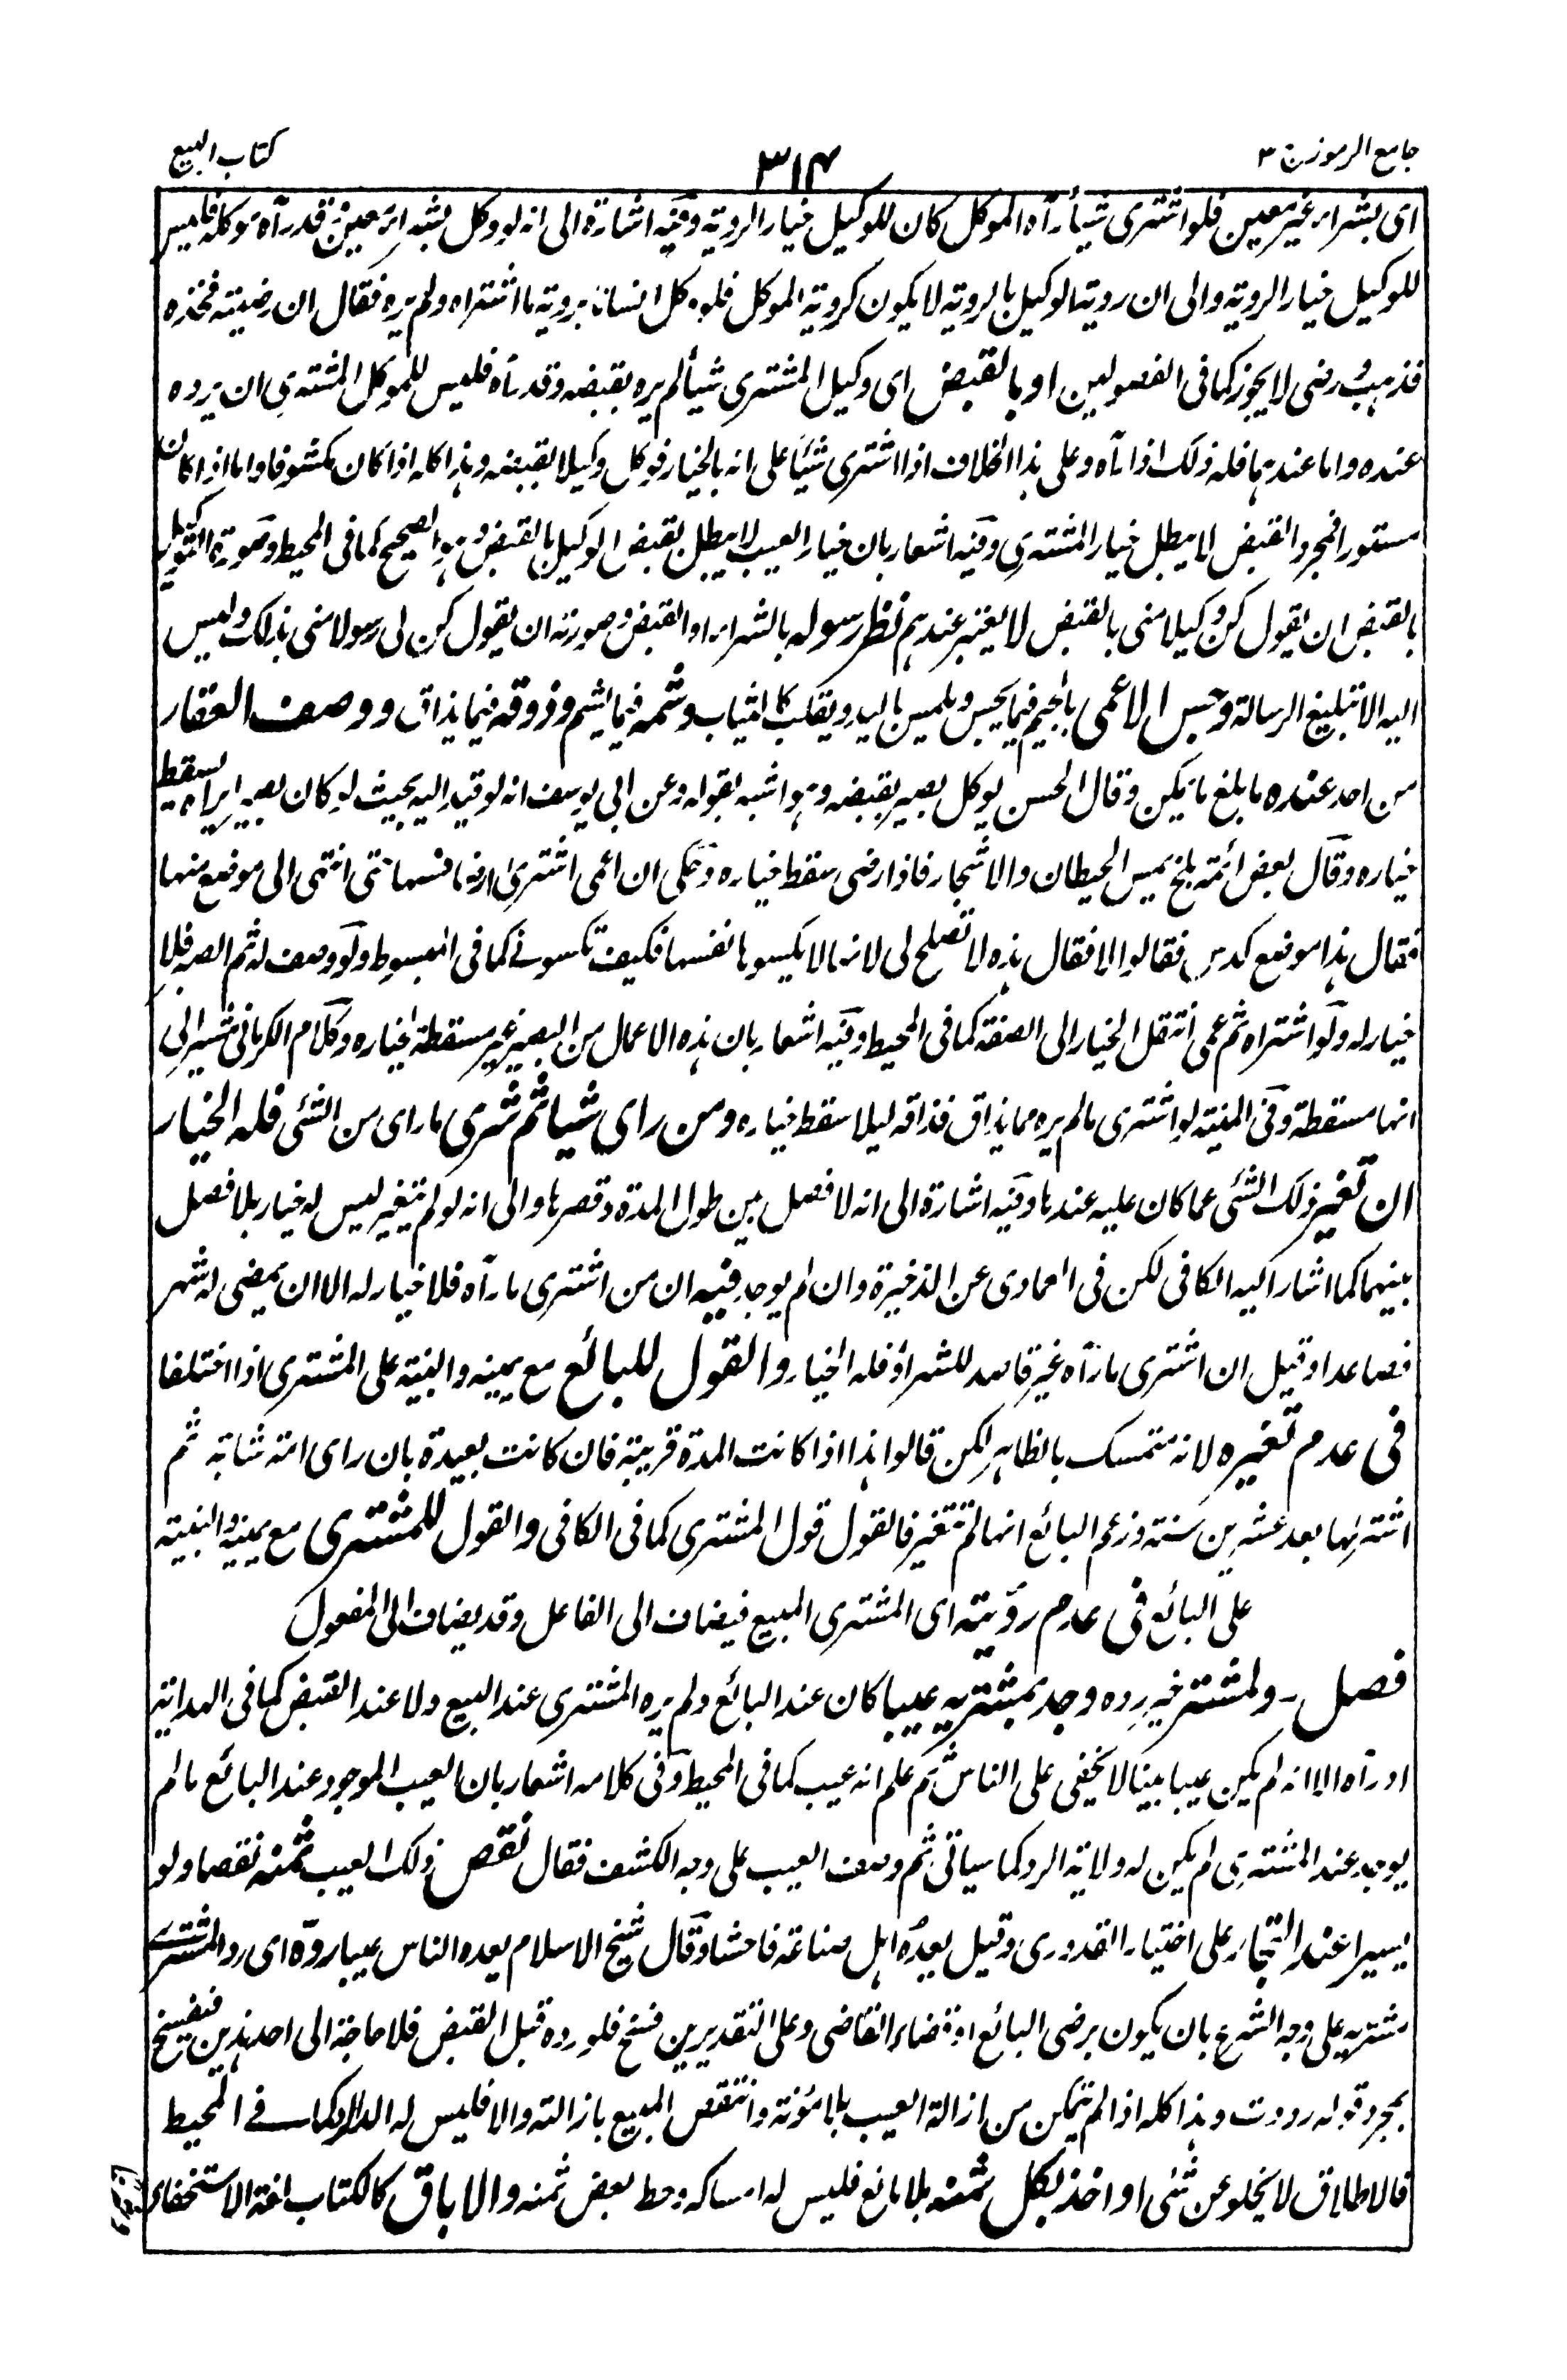 جامع الرموز ن ٣
٣١٤
كتاب البيع
اى بشراء غير معين فلو اشترى شيأ رآه الموكل كان للوكيل خيار الروية وفيه اشارة الى انه لو وكل بشراء معين قد رآه موكله فليس
للوكيل خيار الروية والى ان روية الوكيل بالروية لا يكون كروية الموكل فلو وكل انسانا بروية ما اشتراه ولم يره فقال ان رضيته فخذه
فذهب ورضى لا يجوز كما فى الفصولين او بالقبض اى وكيل المشترى شيأ لم يره بقبضه وقد رآه فليس للموكل المشترى ان يرده
عنده واما عندهما فله ذلك اذا رآه وعلى هذا الخلاف اذا اشترى شيئا على انه بالخيار فوكل وكيلا بقبضه وهذا كله اذا كان مكشوفا واما اذا كان
مستورا فمجرد القبض لا يبطل خيار المشترى وفيه اشعار بان خيار العيب لا يبطل بقبض الوكيل بالقبض وهو الصحيح كما فى المحيط وصورة التوكيل
بالقبض ان يقول كن وكيلا منى بالقبض لا يعتبر عندهم نظر رسوله بالشراء او القبض وصورته ان يقول كن لى رسولا منى بذلك وليس
اليه الا تبليغ الرسالة وجس الاعمى بالجيم فيما يجس ويلمس باليد ويقلب كالثياب وشمه فيما يشم وذوقه فيما يذاق ووصف العقار
من احد عنده ما بلغ ما يمكن وقال الحسن يوكل بصيرا بقبضه وهو اشبه بقوله وعن ابى يوسف انه لو قيد اليه بحيث لو كان بصيرا يراه يسقط
خياره وقال بعض ائمة بلخ يمس الحيطان والاشجار فاذا رضى سقط خياره وحكى ان اعمى اشترى ارضا فمسها حتى انتهى الى موضع منها
فقال هذا موضع كدس فقالوا لا فقال هذه لا تصلح لى لانها لا يكسوها نفسها فكيف تكسونى كما فى المبسوط ولو وصف له ثم ابصر فلا
خيار له ولو اشتراه ثم عمى انتقل الخيار الى الصفة كما فى المحيط وفيه اشعار بان هذه الاعمال من البصير غير مسقطة لخياره وكلام الكرمانى مشير الى
انها مسقطة وفى المنية لو اشترى ما لم يره مما يذاق فذاقه ليلا سقط خياره ومن راى شيا ثم شرى ما راى من الشئى فله الخيار
ان تغير ذلك الشئى عما كان عليه عندها وفيه اشارة الى انه لا فصل بين طول المدة وقصرها والى انه لو لم يتغير ليس له خيار بلا فصل
بينهما كما اشار اليه الكافى لكن فى العمادى عن الذخيرة وان لم يوجد فيه ان من اشترى ما رآه فلا خيار له الا ان يمضى له شهر
فصاعدا وقيل ان اشترى ما رآه غير قاصد للشراء فله الخيار والقول للبائع مع يمينه والبينة على المشترى اذا اختلفا
فى عدم تغيره لانه متمسك بالظاهر لكن قالوا هذا اذا كانت المدة قريبة فان كانت بعيدة بان راى امة شابة ثم
اشتراها بعد عشرين سنة وزعم البائع انها لم تتغير فالقول قول المشترى كما فى الكافى والقول للمشترى مع يمينه والبينة
على البائع فى عدم رؤيته اى المشترى المبيع فيضاف الى الفاعل وقد يضاف الى المفعول
فصل ـ ولمشتر خبره رده وجد بمشتريه عيبا كان عند البائع ولم يره المشترى عند البيع ولا عند القبض كما فى الهداية
او رآه الا انه لم يكن عيبا بينا لا يخفى على الناس ثم علم انه عيب كما فى المحيط وفى كلامه اشعار بان العيب الموجود عند البائع ما لم
يوجد عند المشترى لم يكن له ولاية الرد كما سياتى ثم وصف العيب على وجه الكشف فقال نقص ذلك العيب ثمنه نقصا ولو
يسيرا عند التجار على اختيار القدورى وقيل يعده اهل صناعة فاحشا وقال شيخ الاسلام يعده الناس عيبا رده اى رد المشترى
مشتريه على وجه الشرع بان يكون برضى البائع او قضاء القاضى وعلى التقديرين فسخ فلو رده قبل القبض فلا حاجة الى احد هذين فينفسخ
بمجرد قوله رددت وهذا كله اذا لم يتمكن من ازالة العيب بلا مؤنة وانتقص المبيع بازالته والا فليس له الرد كما فى المحيط
فالاطلاق لا يخلو عن شئى او اخذ بكل ثمنه بلا مانع فليس له امساكه وحط بعض ثمنه والاباق كالكتاب لغة الاستخفاء